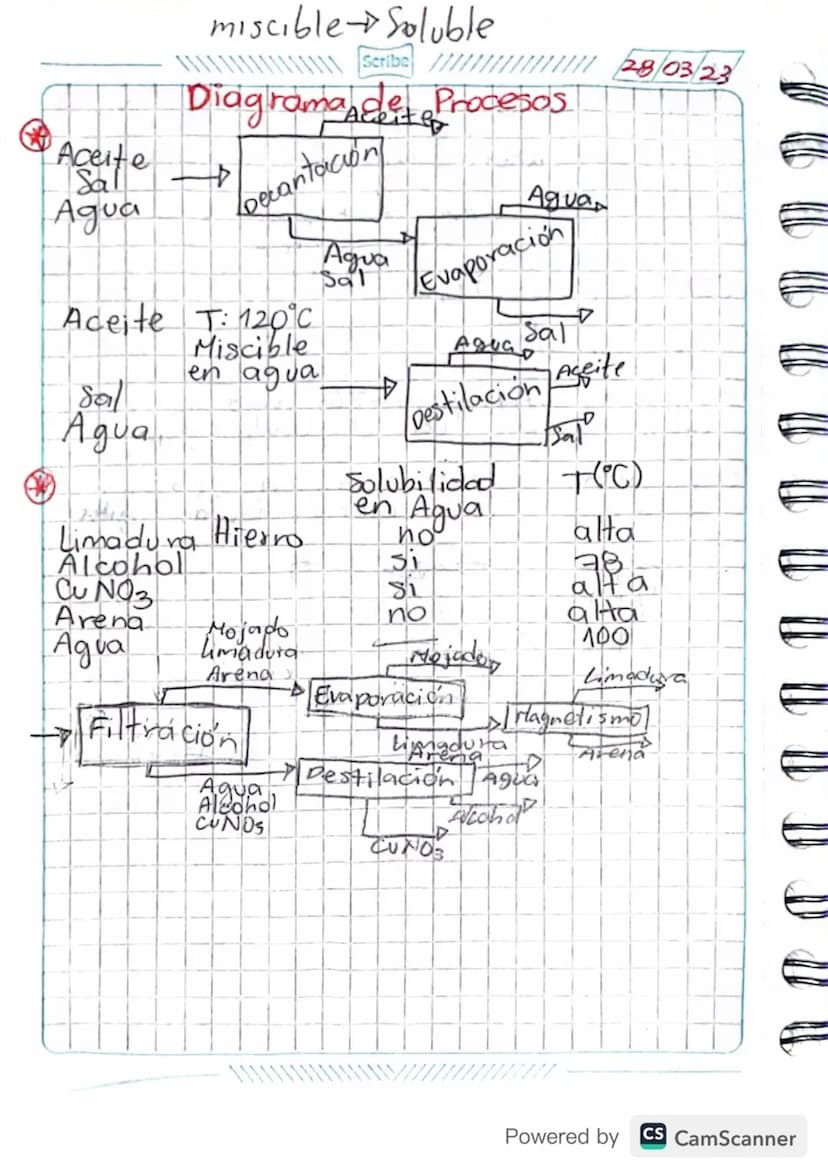 miscible→Soluble
Scribe
28/03/23
Diagrama de Procesos
Aceite
Aceite
Sal
Agua
Decantación
Agua
Agua
Sal
Evaporación
Sal
Aceite T: 120°C
Miscible
en agua
Sal
Agua
Agua
Aceite
Destilación
Sal
Solubilidad
en Agua
T(°C)
Limadura Hierro no alta
Alcohol si 78
CuNO3 si alta
Arena no alta
Agua 100
Mojado
Limadura
Arena
Mojado
Evaporación
Limadura
Magnetismo
Arena
Filtración
Limadura
Arena
Agua
Alcohol
CuNO3
Destilación
Agua
Alcohol
CuNO3
Powered by CS CamScanner